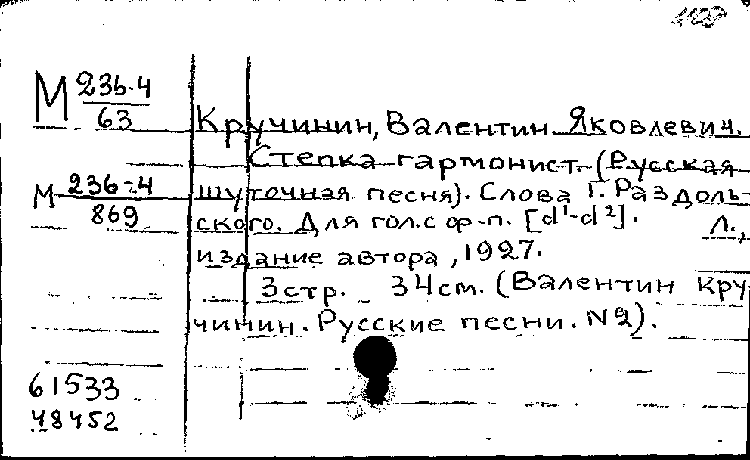 1128
М 236-4
63
Кручинин, Валентин Яковлевич.
Степка гармонист. (Русская
М 236-4
869
шуточная песня). Слова Г. Раздоль-
ского. Для гол. с ф-п. [d¹-d²]. Л.,
издание автора, 1927.
3 стр. 34 см. (Валентин Кру-
чинин. Русские песни. №2).
61533
48452